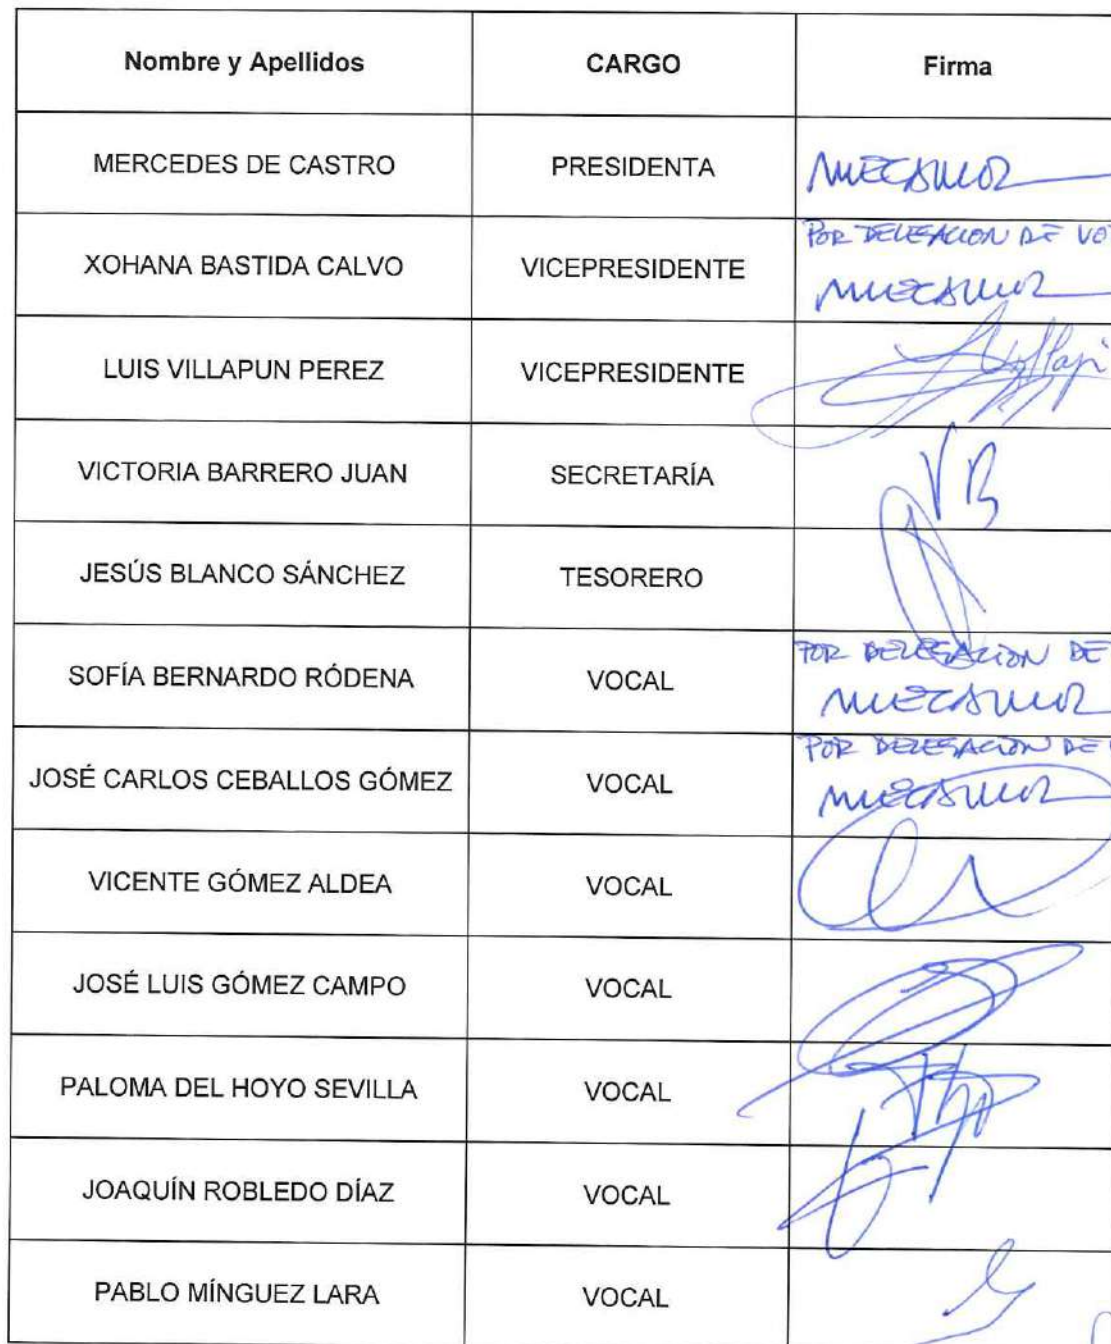 Nombre y Apellidos CARGO Firma
MERCEDES DE CASTRO PRESIDENTA
POR DELEGACION DE VOT
XOHANA BASTIDA CALVO VICEPRESIDENTE
LUIS VILLAPUN PEREZ VICEPRESIDENTE
VICTORIA BARRERO JUAN SECRETARÍA VB
JESÚS BLANCO SÁNCHEZ TESORERO
POR DELEGACION DE
SOFÍA BERNARDO RÓDENA VOCAL
POR DELEGACION DE
JOSÉ CARLOS CEBALLOS GÓMEZ VOCAL
VICENTE GÓMEZ ALDEA VOCAL
JOSÉ LUIS GÓMEZ CAMPO VOCAL
PALOMA DEL HOYO SEVILLA VOCAL
JOAQUÍN ROBLEDO DÍAZ VOCAL
PABLO MÍNGUEZ LARA VOCAL